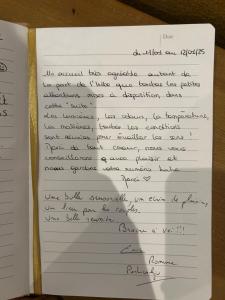 du 11/01 au 12/01/25
Un accueil très agréable autant de
la part de l'hôte que toutes les petites
attentions mises à disposition dans
cette "suite".
Les lumières, les odeurs, la température,
les matières, toutes les conditions
sont réunies pour éveiller les sens !
Merci de tout coeur, nous vous
conseillerons avec plaisir et
nous gardons votre numéro
Merci ♡
Une bulle sensorielle, un écrin de plaisirs,
un lieu pour les couples,
Une belle réussite.
Bravo à vs !!!
Romane